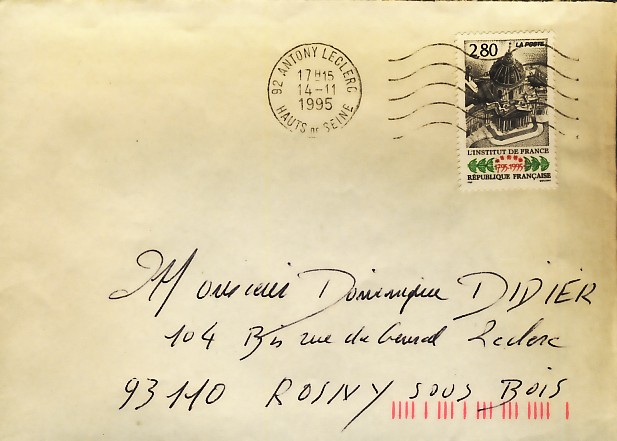 92 ANTONY LECLERC
17H15
14-11
1995
HAUTS DE SEINE
2,80 LA POSTE
L'INSTITUT DE FRANCE
1795-1995
RÉPUBLIQUE FRANÇAISE
Monsieur Dominique DIDIER
104 Bis rue du General Leclerc
93110 ROSNY SOUS BOIS